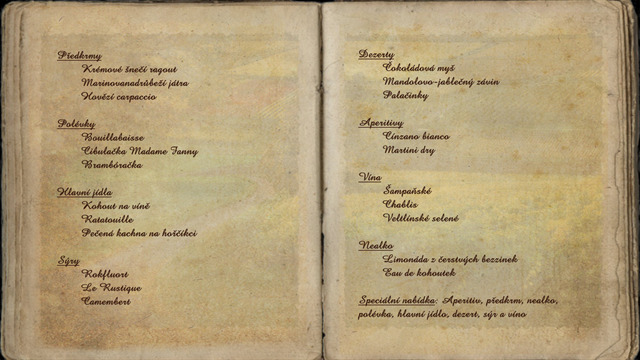 Předkrmy
Krémové šnečí ragout
Marinovanádrůbeží játra
Hovězí carpaccio
Polévky
Bouillabaisse
Cibulačka Madame Fanny
Brambóračka
Hlavní jídla
Kohout na víně
Ratatouille
Pečená kachna na hořčíkci
Sýry
Rokfluort
Le Rustique
Camembert
Dezerty
Čokoládová myš
Mandolovo-jablečný závin
Palačinky
Aperitivy
Cinzano bianco
Martini dry
Vína
Šampaňské
Chablis
Veltlínské selené
Nealko
Limonáda z čerstvých bezzinek
Eau de kohoutek
Speciální nabídka: Aperitiv, předkrm, nealko,
polévka, hlavní jídlo, dezert, sýr a víno